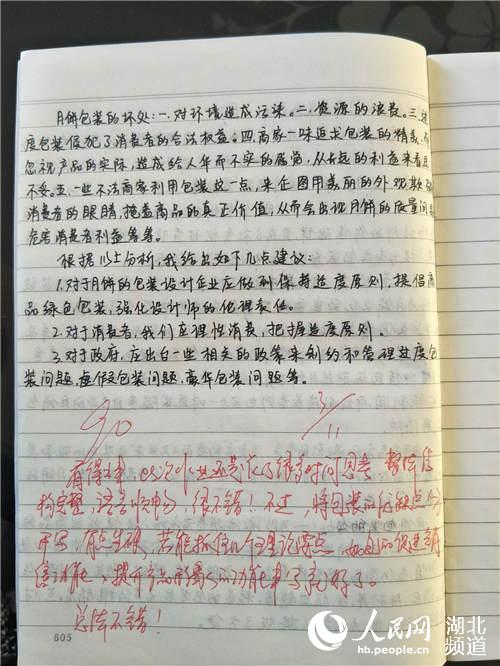 月饼包装的坏处:一.对环境造成污染。二.资源的浪费。三.过
度包装侵犯了消费者的合法权益。四.商家一味追求包装的精美,而
忽视产品的实际,造成给人华而不实的感觉,从长远的利益来看是
不妥。五.一些不法商家利用包装这一点,来企图用美丽的外观欺
消费者的眼睛,掩盖商品的真正价值,从而会出现月饼的质量问题
危害消费者利益等等。
根据以上分析,我给出如下几点建议:
1.对于月饼的包装设计企业应做到保持适度原则,提倡商
品绿色包装,强化设计师的伦理责任。
2.对于消费者,我们应理性消费,把握适度原则。
3.对于政府,应出台一些相关的政策来制约和管理过度包
装问题,虚假包装问题,豪华包装问题等。
90
3/11
看得出来,此次作业还是花了很多时间思考,整体结
构完整,语言顺畅,很不错!不过,将包装的优缺点分
开写,有点生硬,若能抓住几个理论要点,如包的促进
功能,提升产品形象的功能来写就好了。
总体不错!
605
人民网 湖北
hb.people.cn